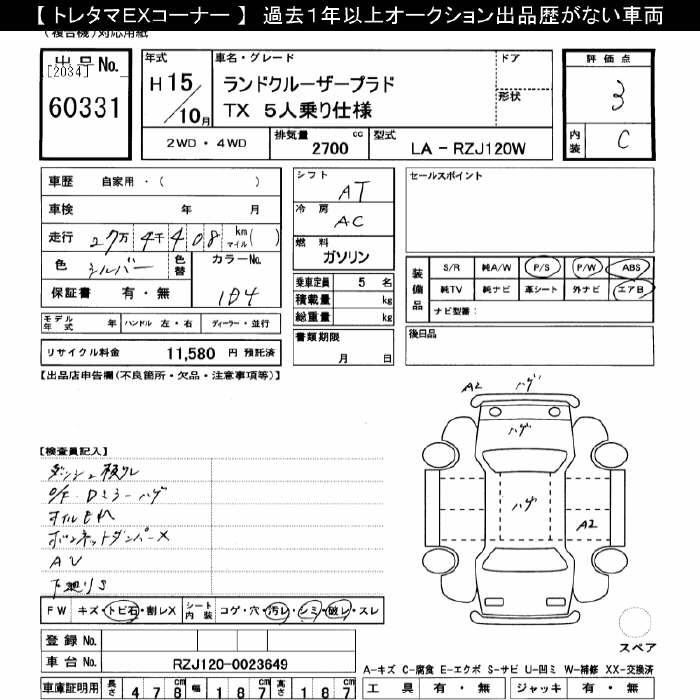 【 トレタマEXコーナー 】 過去1年以上オークション出品歴がない車両
(複合機)対応用紙
出品No.
[2034]
60331
年式
H 15
10月
車名・グレード
ランドクルーザープラド
TX 5人乗り仕様
ドア
形状
評価点
3
内装
C
2WD・4WD
排気量
2700
cc
型式
LA-RZJ120W
車歴 自家用・( )
車検 年 月
走行 27万 4千 4 0 8 km マイル ( )
色 シルバー
色替
カラーNo.
1D4
保証書 有・無
モデル年式 年 ハンドル 左・右 ディーラー・並行
リサイクル料金 11,580 円 預託済
シフト
AT
冷房
AC
燃料
ガソリン
乗車定員 5 名
積載量 kg
総重量 kg
書類期限
月 日
セールスポイント
装備品
S/R 純A/W P/S P/W ABS
純TV 純ナビ 革シート 外ナビ エアB
ナビ型番:
後日品
【出品店申告欄(不良箇所・欠品・注意事項等)】
A2 ハゲ
ハゲ
ハゲ
A2
【検査員記入】
O/F・Dミラーハゲ
オイルもれ
ボンネットダンパーX
AV
下廻りS
FW キズ・トビ石・割レX
シート内装 コゲ・穴・汚レ・シミ・破レ・スレ
登録No.
車台No. RZJ120-0023649
スペア
A-キズ C-腐食 E-エクボ S-サビ U-凹ミ W-補修 XX-交換済
車庫証明用 長さ 478 cm 幅 187 cm 高さ 187 cm
工具 有・無 ジャッキ 有・無